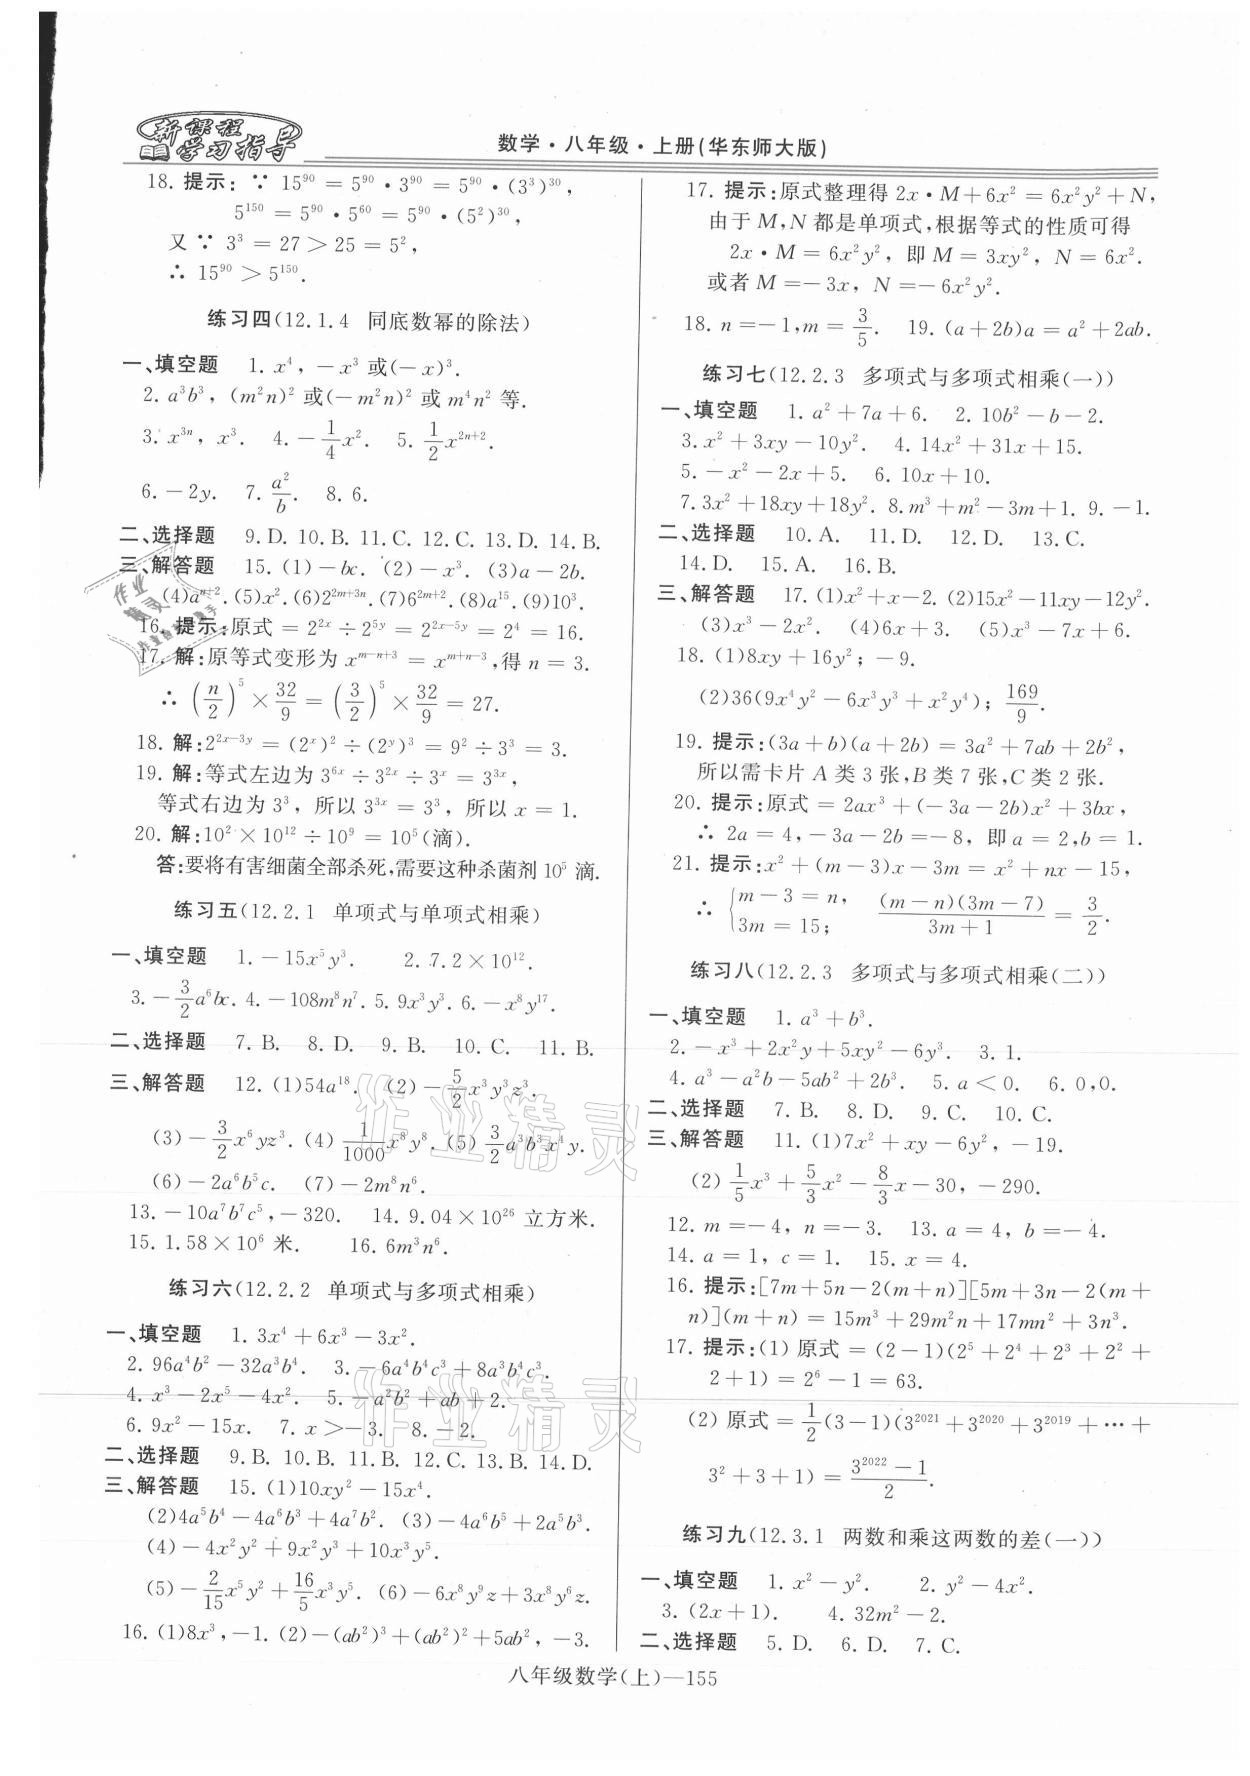 新课程
学习指导
数学·八年级·上册(华东师大版)
18. 提示: ∵ 15⁹⁰ = 5⁹⁰ · 3⁹⁰ = 5⁹⁰ · (3³)³⁰,
5¹⁵⁰ = 5⁹⁰ · 5⁶⁰ = 5⁹⁰ · (5²)³⁰,
又 ∵ 3³ = 27 > 25 = 5²,
∴ 15⁹⁰ > 5¹⁵⁰.
练习四(12.1.4 同底数幂的除法)
一、填空题 1. x⁴, −x³ 或(−x)³.
2. a³b³, (m²n)² 或(−m²n)² 或 m⁴n² 等.
3. x³ⁿ, x³. 4. −1/4 x². 5. 1/2 x²ⁿ⁺².
6. −2y. 7. a²/b. 8. 6.
二、选择题 9. D. 10. B. 11. C. 12. C. 13. D. 14. B.
三、解答题 15. (1)−bc. (2)−x³. (3)a−2b.
(4)aⁿ⁺². (5)x². (6)2²ᵐ⁺³ⁿ. (7)6²ᵐ⁺². (8)a¹⁵. (9)10³.
16. 提示:原式 = 2^(2x) ÷ 2^(5y) = 2^(2x−5y) = 2⁴ = 16.
17. 解:原等式变形为 x^(m−n+3) = x^(m+n−3),得 n = 3.
∴ (n/2)⁵ × 32/9 = (3/2)⁵ × 32/9 = 27.
18. 解:2^(2x−3y) = (2ˣ)² ÷ (2ʸ)³ = 9² ÷ 3³ = 3.
19. 解:等式左边为 3^(6x) ÷ 3^(2x) ÷ 3ˣ = 3^(3x),
等式右边为 3³, 所以 3^(3x) = 3³, 所以 x = 1.
20. 解:10² × 10¹² ÷ 10⁹ = 10⁵(滴).
答:要将有害细菌全部杀死,需要这种杀菌剂 10⁵ 滴.
练习五(12.2.1 单项式与单项式相乘)
一、填空题 1. −15x⁵y³. 2. 7.2×10¹².
3. −3/2 a⁶bc. 4. −108m⁸n⁷. 5. 9x³y³. 6. −x⁸y¹⁷.
二、选择题 7. B. 8. D. 9. B. 10. C. 11. B.
三、解答题 12. (1)54a¹⁸. (2)−5/2 x³y³z³.
(3)−3/2 x⁶yz³. (4) 1/1000 x⁸y⁸. (5) 3/2 a³b³x⁴y.
(6)−2a⁶b⁵c. (7)−2m⁸n⁶.
13. −10a⁷b⁷c⁵, −320. 14. 9.04×10²⁶ 立方米.
15. 1.58×10⁶ 米. 16. 6m³n⁶.
练习六(12.2.2 单项式与多项式相乘)
一、填空题 1. 3x⁴+6x³−3x².
2. 96a⁴b²−32a³b⁴. 3. −6a⁴b⁴c³+8a³b⁴c³.
4. x³−2x⁵−4x². 5. −a²b²+ab+2.
6. 9x²−15x. 7. x>−3. 8. −2.
二、选择题 9. B. 10. B. 11. B. 12. C. 13. B. 14. D.
三、解答题 15. (1)10xy²−15x⁴.
(2)4a⁵b⁴−4a⁶b³+4a⁷b². (3)−4a⁶b⁵+2a⁵b³.
(4)−4x²y²+9x²y³+10x³y⁵.
(5)−2/15 x⁵y²+16/5 x³y⁵. (6)−6x⁸y⁹z+3x⁸y⁶z.
16. (1)8x³, −1. (2)−(ab²)³+(ab²)²+5ab², −3.
17. 提示:原式整理得 2x·M+6x² = 6x²y²+N,
由于 M,N 都是单项式,根据等式的性质可得
2x·M = 6x²y², 即 M = 3xy², N = 6x².
或者 M =−3x, N =−6x²y².
18. n =−1, m = 3/5. 19. (a+2b)a = a²+2ab.
练习七(12.2.3 多项式与多项式相乘(一))
一、填空题 1. a²+7a+6. 2. 10b²−b−2.
3. x²+3xy−10y². 4. 14x²+31x+15.
5. −x²−2x+5. 6. 10x+10.
7. 3x²+18xy+18y². 8. m³+m²−3m+1. 9. −1.
二、选择题 10. A. 11. D. 12. D. 13. C.
14. D. 15. A. 16. B.
三、解答题 17. (1)x²+x−2. (2)15x²−11xy−12y².
(3)x³−2x². (4)6x+3. (5)x³−7x+6.
18. (1)8xy+16y²; −9.
(2)36(9x⁴y²−6x³y³+x²y⁴); 169/9.
19. 提示:(3a+b)(a+2b) = 3a²+7ab+2b²,
所以需卡片 A 类 3 张,B 类 7 张,C 类 2 张.
20. 提示:原式 = 2ax³+(−3a−2b)x²+3bx,
∴ 2a = 4, −3a−2b =−8, 即 a = 2, b = 1.
21. 提示:x²+(m−3)x−3m = x²+nx−15,
∴ {m−3 = n, 3m = 15; (m−n)(3m−7)/(3m+1) = 3/2.
练习八(12.2.3 多项式与多项式相乘(二))
一、填空题 1. a³+b³.
2. −x³+2x²y+5xy²−6y³. 3. 1.
4. a³−a²b−5ab²+2b³. 5. a<0. 6. 0,0.
二、选择题 7. B. 8. D. 9. C. 10. C.
三、解答题 11. (1)7x²+xy−6y², −19.
(2) 1/5 x³+5/3 x²−8/3 x−30, −290.
12. m =−4, n =−3. 13. a = 4, b =−4.
14. a = 1, c = 1. 15. x = 4.
16. 提示:[7m+5n−2(m+n)][5m+3n−2(m+
n)](m+n) = 15m³+29m²n+17mn²+3n³.
17. 提示:(1) 原式 = (2−1)(2⁵+2⁴+2³+2²+
2+1) = 2⁶−1 = 63.
(2) 原式 = 1/2 (3−1)(3²⁰²¹+3²⁰²⁰+3²⁰¹⁹+⋯+
3²+3+1) = (3²⁰²²−1)/2.
练习九(12.3.1 两数和乘这两数的差(一))
一、填空题 1. x²−y². 2. y²−4x².
3. (2x+1). 4. 32m²−2.
二、选择题 5. D. 6. D. 7. C.
八年级数学(上)—155
作业精灵
作业精灵
作业
精灵